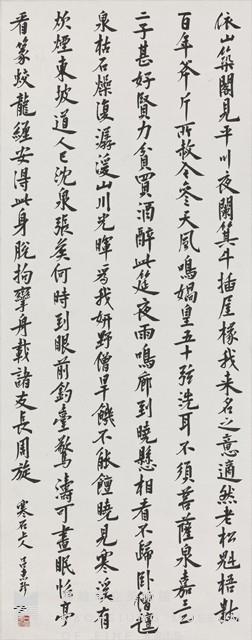 依山築閣見平川夜闌箕斗插屋椽我來名之意適然老松魁梧數
百年斧斤所赦今參天風鳴媧皇五十弦洗耳不須菩薩泉嘉三
二子甚好賢力貧買酒醉此筵夜雨鳴廊到曉懸相看不歸卧僧氊
泉枯石燥復潺湲山川光暉為我妍野僧旱饑不能饘曉見寒溪有
炊煙東坡道人已沈泉張侯何時到眼前釣臺驚濤可晝眠怡亭
看篆蛟龍纏安得此身脫拘攣舟載諸友長周旋
寒石上人